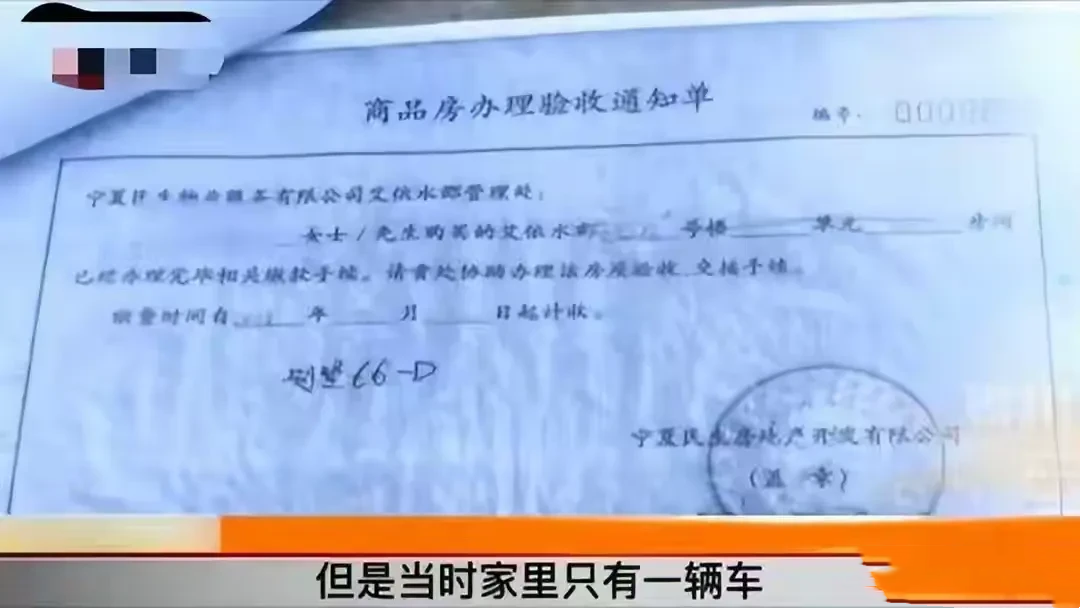 商品房办理验收通知单
编号: 0000
宁夏民生物业服务有限公司艾依水郡管理处:
女士/先生购买的艾依水郡 号楼 单元 房间
已经办理完毕相关缴款手续。请贵处协助办理该房屋验收、交接手续。
缴费时间自 年 月 日起计收。
别墅66-D
宁夏民生房地产开发有限公司
(盖 章)
但是当时家里只有一辆车